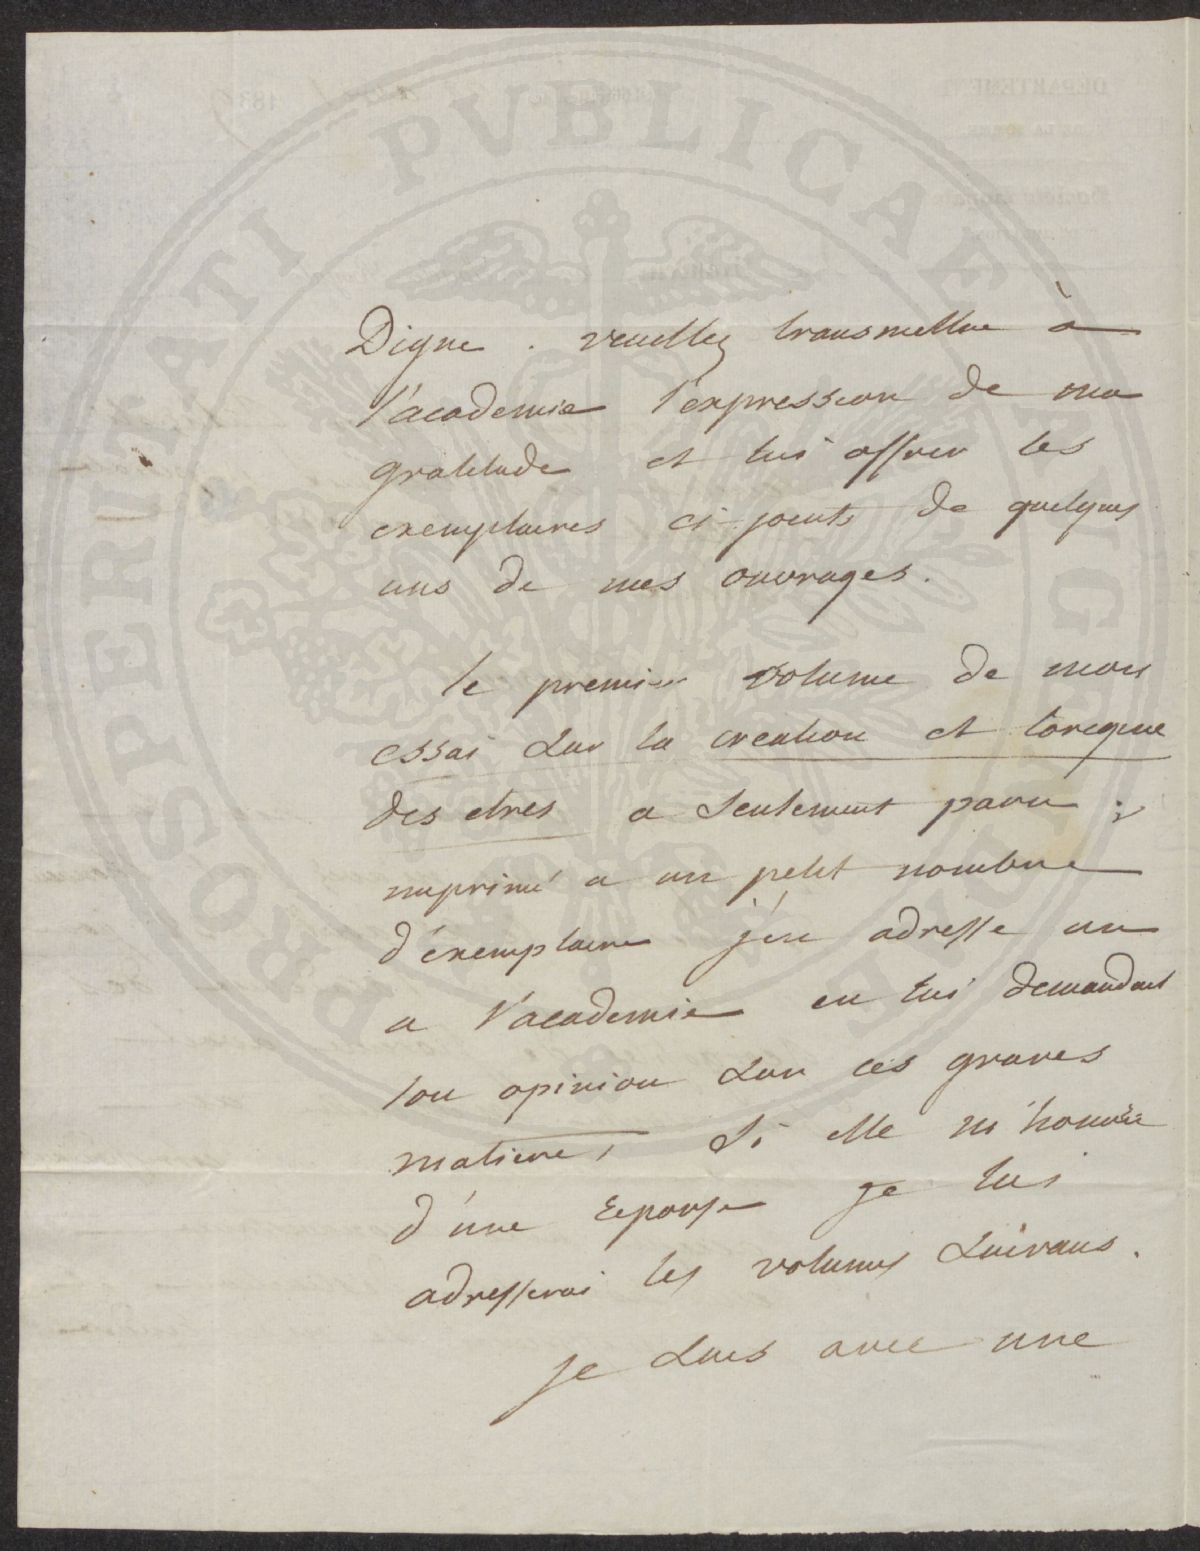 PROSPERITATI PUBLICAE AUGENDAE
Digne. veuillez transmettre à
l'academie l'expression de ma
gratitude et lui offrir les
exemplaires ci-joints de quelques
uns de mes ouvrages.
le premier volume de mon
essai sur la creation et l'origine
des etres a seulement paru ;
imprimé a un petit nombre
d'exemplaire j'en adresse un
a l'academie en lui demandant
son opinion sur ces graves
matiere, si elle m'honore
d'une reponse je lui
adresserai les volumes suivans.
je suis avec une